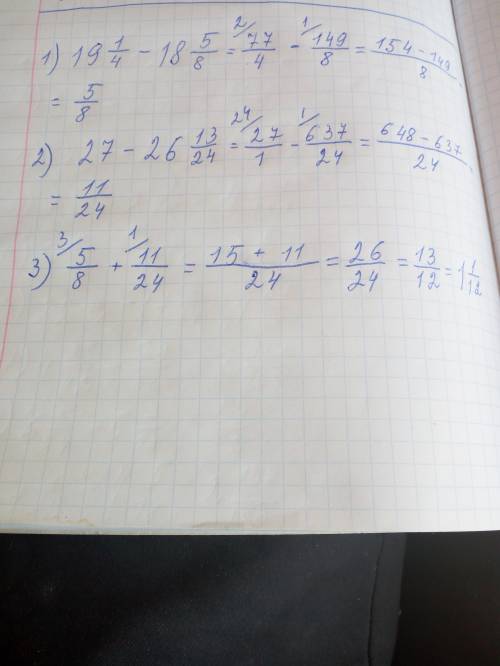 1) 19 1/4 - 18 5/8 = ²/ 77/4 - ¹/ 149/8 = (154 - 149)/8
= 5/8
2) 27 - 26 13/24 = ²⁴/ 27/1 - ¹/ 637/24 = (648 - 637)/24
= 11/24
3) ³/ 5/8 + ¹/ 11/24 = (15 + 11)/24 = 26/24 = 13/12 = 1 1/12